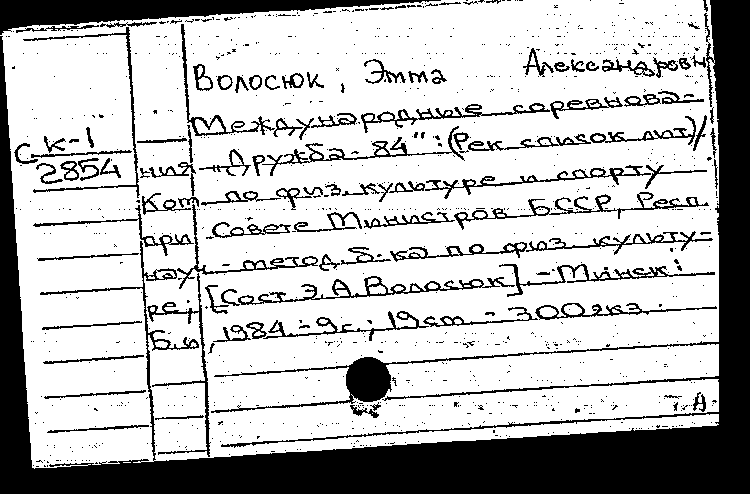 Волосюк, Эмма Александровн
Международные соревнова-
С к-1
2854
ния "Дружба-84": (Рек список лит)/
Ком. по физ. культуре и спорту
при Совете Министров БССР, Респ.
науч-метод. б-ка по физ культу-
ре; [Сост Э.А.Волосюк]. - Минск:
Б.и, 1984. - 9с.; 19см. - 300экз.
А